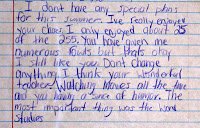 I dont have any special plans
for this summer. I've really enjoyed
your class, I only enjoyed about 25
of the 255. You have given me
numerous fouls but thats okay
I still like you. Dont change
anything I think your wonderful
teacher. Watching Movies all the time
and you having a sence of humor. The
most important thing was the Word
Studies